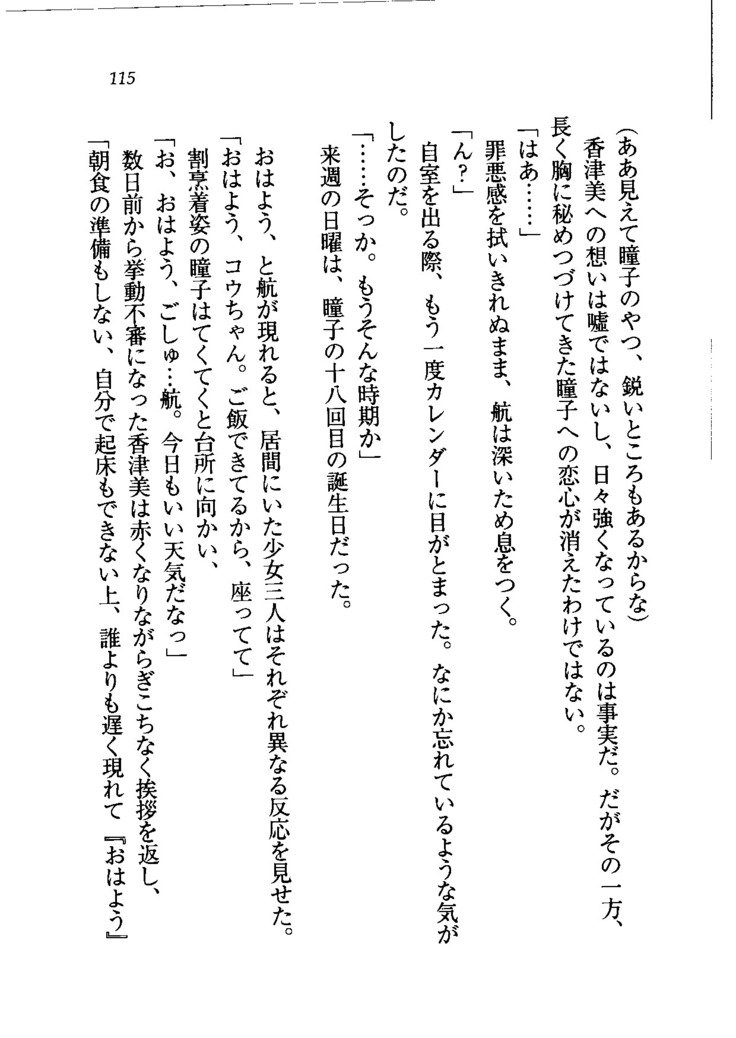 115
(ああ見えて瞳子のやつ、鋭いところもあるからな)
香津美への想いは嘘ではないし、日々強くなっているのは事実だ。だがその一方、
長く胸に秘めつづけてきた瞳子への恋心が消えたわけではない。
「はあ……」
罪悪感を拭いきれぬまま、航は深いため息をつく。
「ん?」
自室を出る際、もう一度カレンダーに目がとまった。なにか忘れているような気が
したのだ。
「……そっか。もうそんな時期か」
来週の日曜は、瞳子の十八回目の誕生日だった。
おはよう、と航が現れると、居間にいた少女三人はそれぞれ異なる反応を見せた。
「おはよう、コウちゃん。ご飯できてるから、座ってて」
割烹着姿の瞳子はてくてくと台所に向かい、
「お、おはよう、ごしゅ…航。今日もいい天気だなっ」
数日前から挙動不審になった香津美は赤くなりながらぎこちなく挨拶を返し、
「朝食の準備もしない、自分で起床もできない上、誰よりも遅く現れて『おはよう』